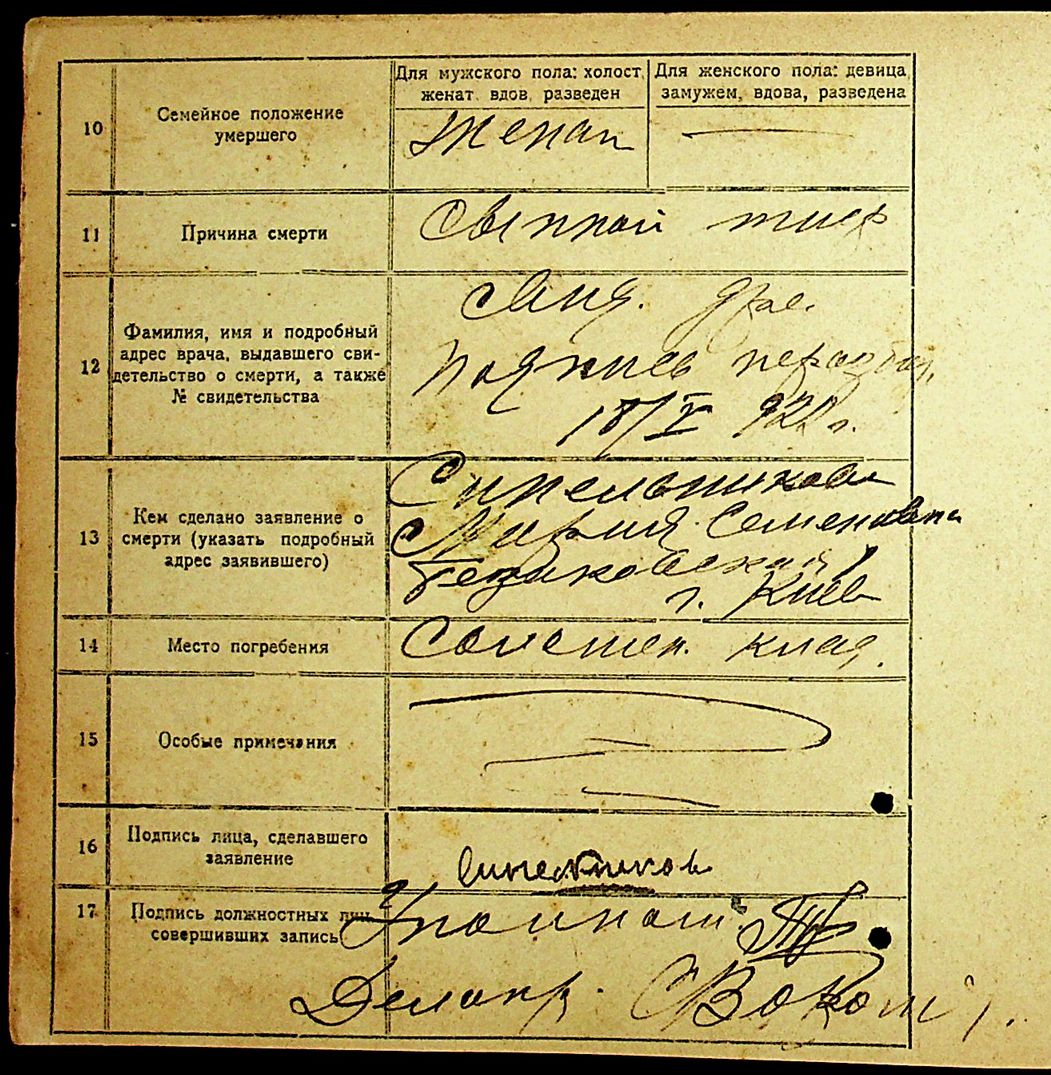 10
Семейное положение
умершего
Для мужского пола: холост,
женат, вдов, разведен
Для женского пола: девица,
замужем, вдова, разведена
Женат
11
Причина смерти
Сыпной тиф
12
Фамилия, имя и подробный
адрес врача, выдавшего сви-
детельство о смерти, а также
№ свидетельства
Подпись неразбор.
18/V 922 г.
13
Кем сделано заявление о
смерти (указать подробный
адрес заявившего)
Синельникова
Мария Семеновна
г. Киев
14
Место погребения
Соломен. клад.
15
Особые примечания
16
Подпись лица, сделавшего
заявление
Синельникова
17
Подпись должностных лиц,
совершивших запись
Уполномоч.
Делопр.